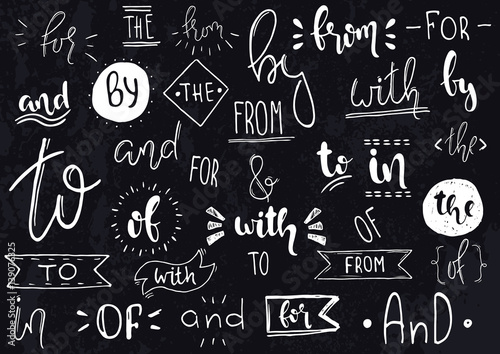 for THE from by from -FOR-
and BY THE FROM with by
and FOR & to in <the>
to of with OF the
TO with TO FROM {of}
in OF and for · AND ·